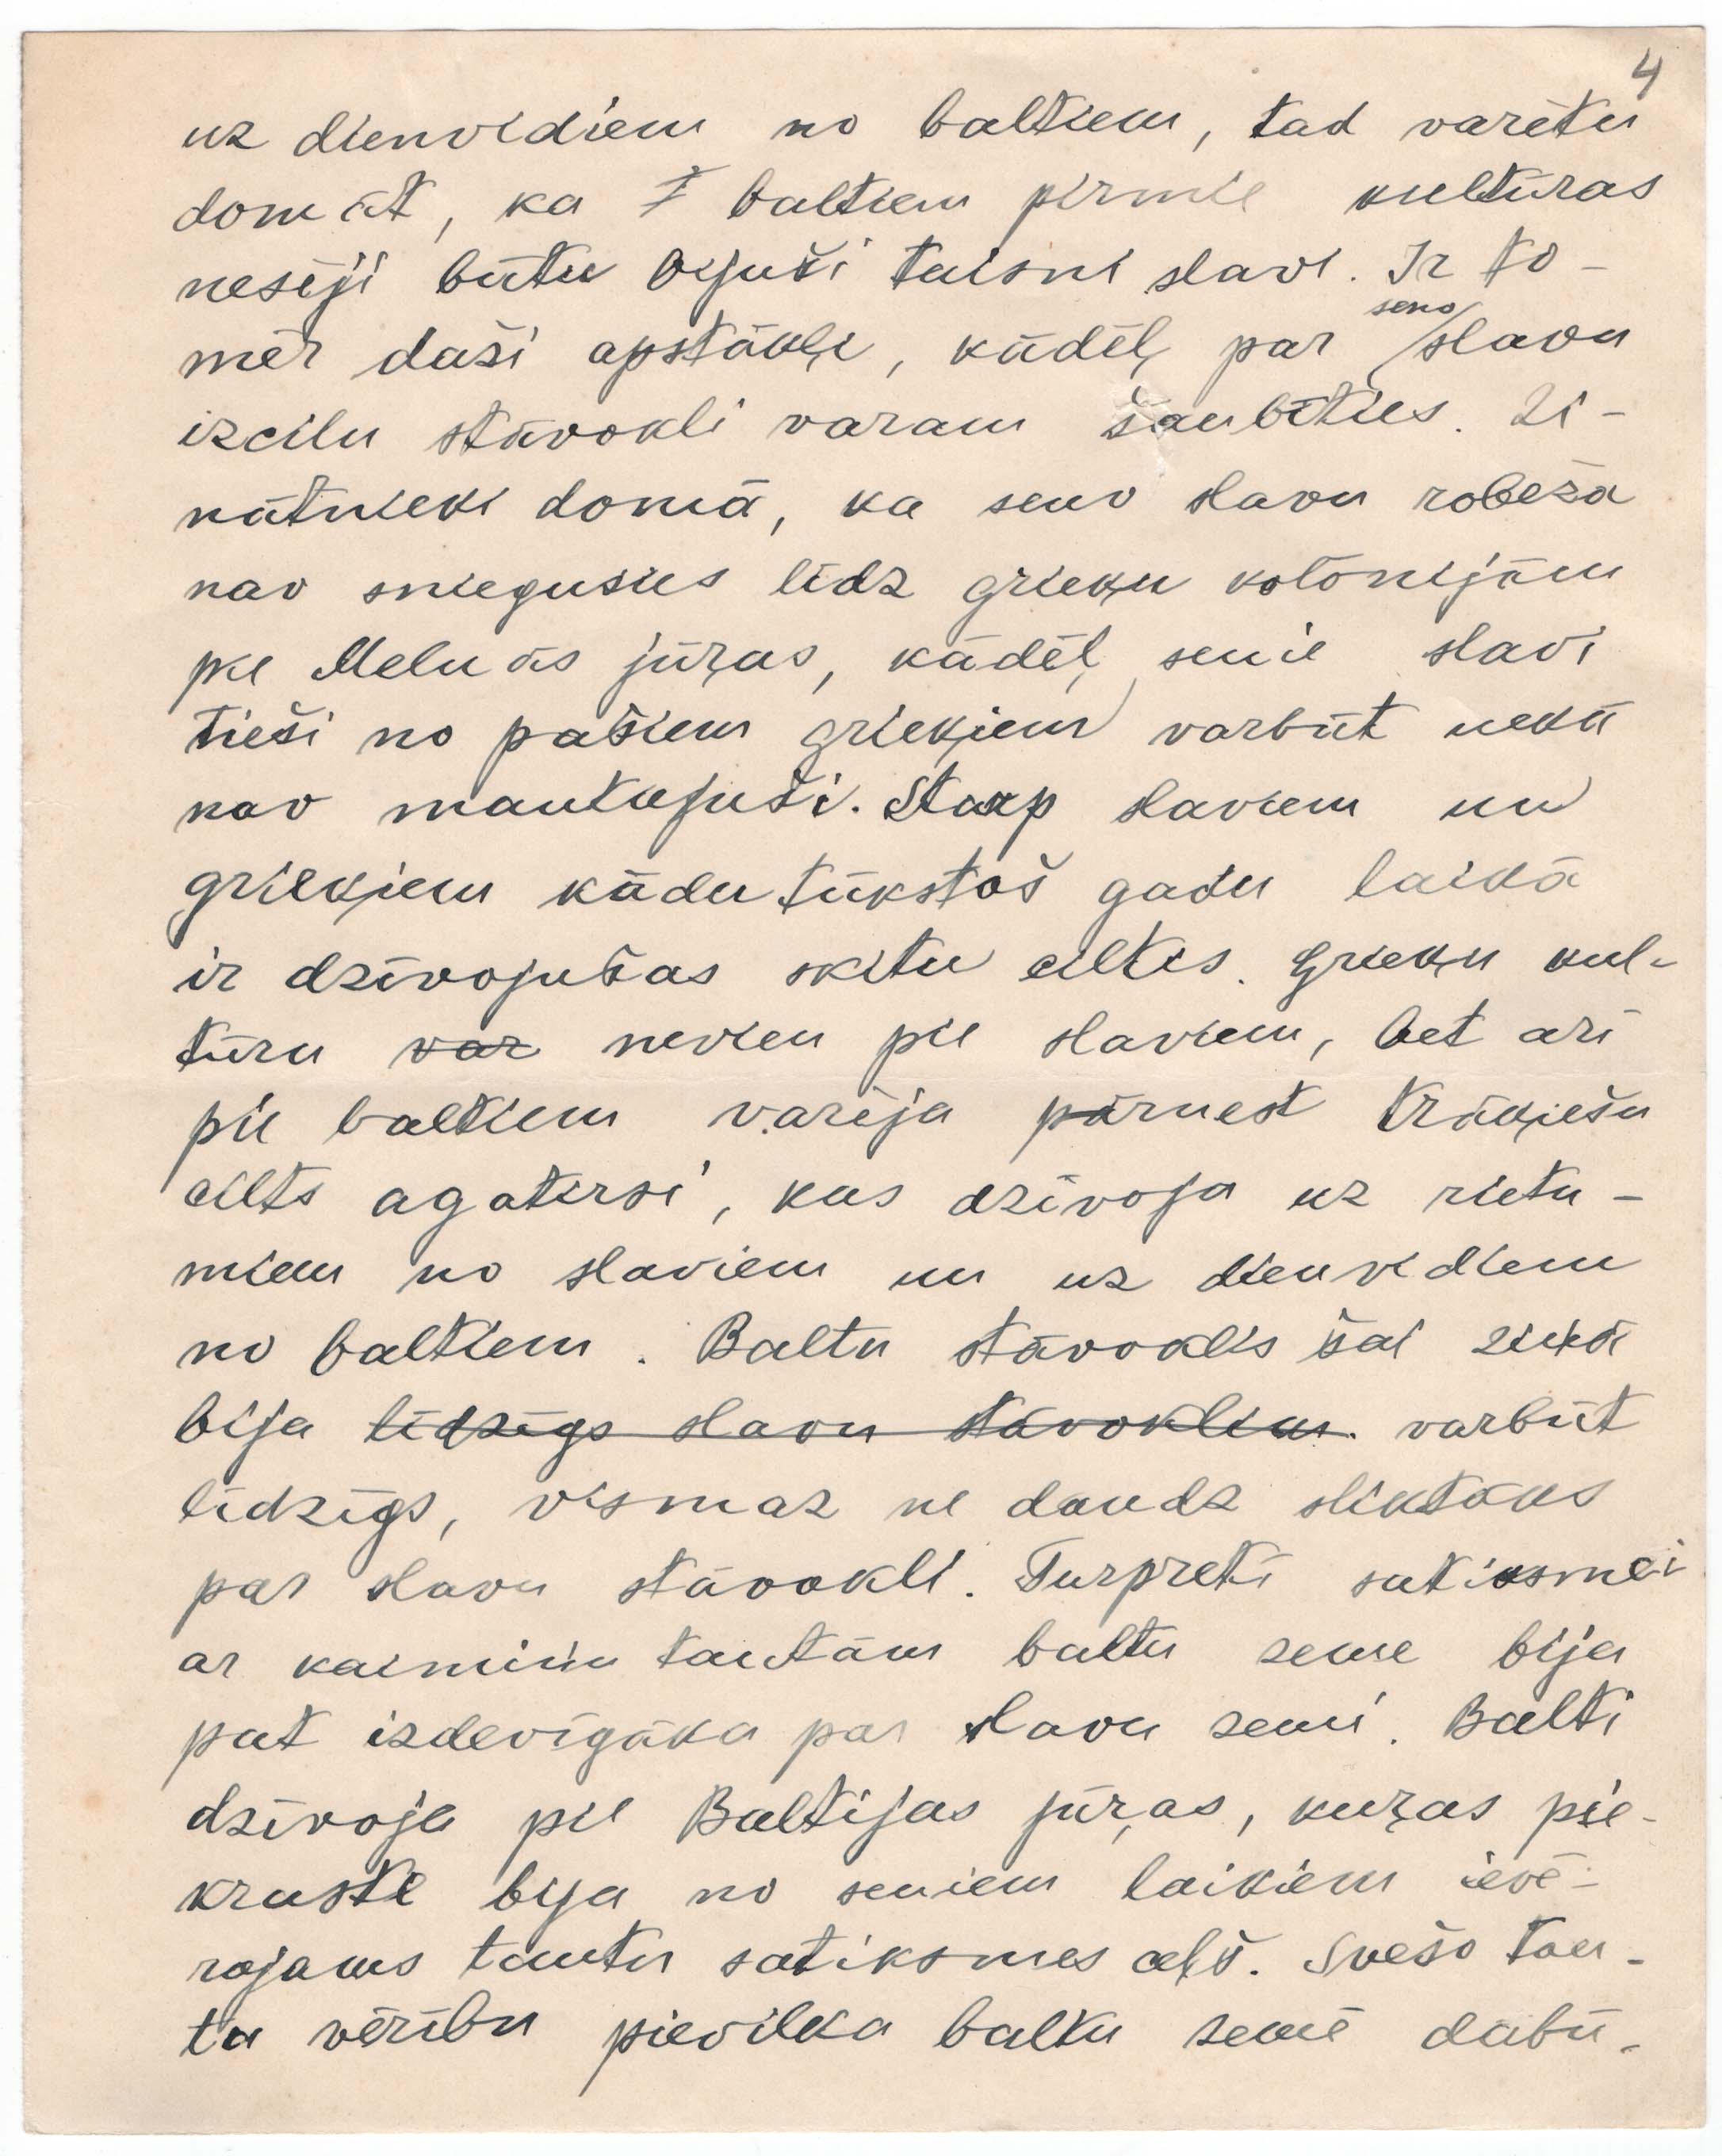 4
uz dienvidiem no baltiem, tad varētu
domāt, ka baltiem pirmie kultūras
nesēji būtu bijuši taisni slavi. Ir to-
mēr daži apstākļi, kādēļ par seno slavu
izcilu stāvokli varam šaubīties. Zi-
nātnieki domā, ka seno slavu robeža
nav sniegusies līdz grieķu kolōnijām
pie Melnās jūŗas, kādēļ senie slavi
tieši no pašiem grieķiem varbūt nekā
nav mantojuši. Starp slaviem un
grieķiem kādu tūkstoš gadu laikā
ir dzīvojušas skitu ciltis. Grieķu kul-
tūru var nevien pie slaviem, bet arī
pie baltiem varēja pārnest trāķiešu
cilts agatirsi, kas dzīvoja uz rietu-
miem no slaviem un uz dienvidiem
no baltiem. Baltu stāvoklis šai ziņā
bija līdzīgs slavu stāvoklim. varbūt
līdzīgs, vismaz ne daudz sliktāks
par slavu stāvokli. Turpretī satiksmei
ar kaimiņu tautām baltu zeme bija
pat izdevīgāka par slavu zemi. Balti
dzīvoja pie Baltijas jūŗas, kuŗas pie-
krastē bija no seniem laikiem ievē-
rojams tautu satiksmes ceļš. Svešo tau-
tu vērību pievilka baltu zemē dabū-